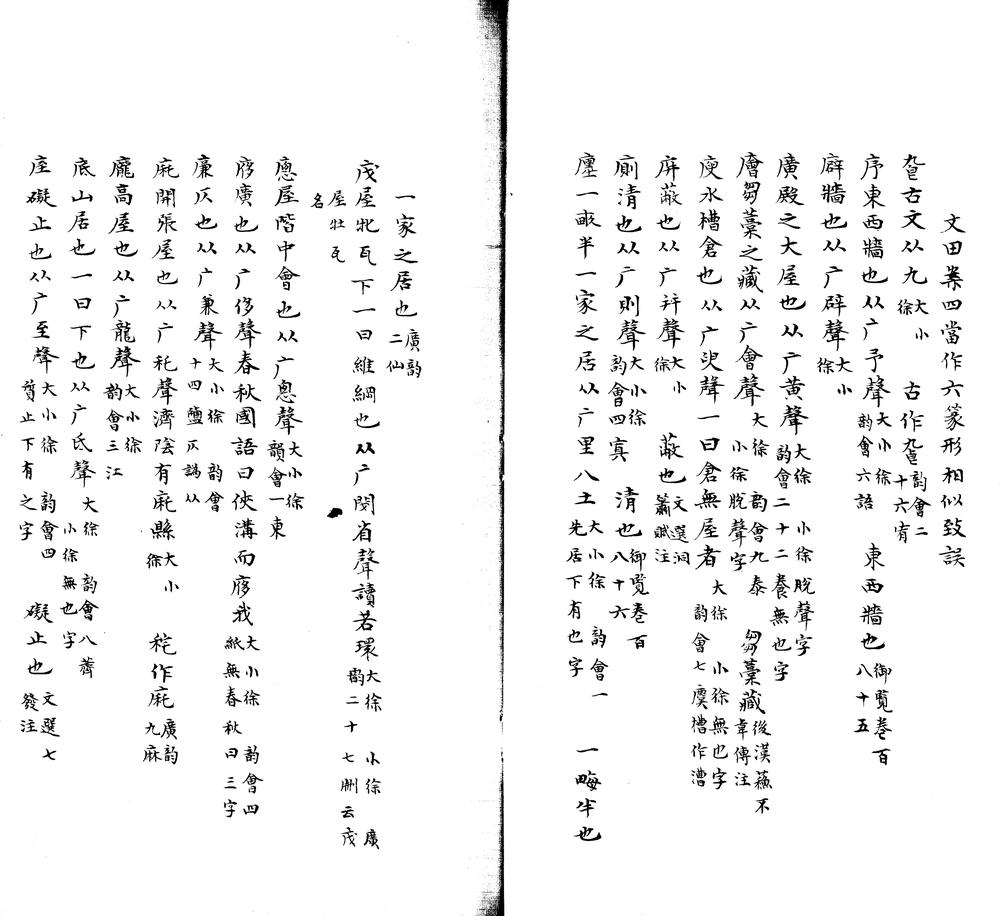 文田案四當作六篆形相似致誤
古文从九大小徐 古作 韵會二十六宥
序東西牆也从广予聲大小徐韵會六語 東西牆也御覽卷百八十五
廦牆也从广辟聲大小徐
廣殿之大屋也从广黃聲大徐 小徐脫聲字韵會二十二養無也字
廥芻藁之藏从广會聲大徐 韵會九泰小徐脫聲字 芻藁藏後漢蘇不韋傳注
庾水槽倉也从广臾聲一曰倉無屋者大徐 小徐無也字韵會七麌槽作漕
庰蔽也从广并聲大小徐 蔽也文選洞簫賦注
廁清也从广則聲大小徐韵會四寘 清也御覽卷百八十六
廛一畝半一家之居从广里八土大小徐 韵會一先居下有也字 一畮半也
一家之居也廣韵二仙
屋牝瓦下一曰維綱也从广閔省聲讀若環大徐 小徐 廣韵二十七刪云
屋牡瓦名
㢔屋階中會也从广悤聲大小徐韻會一東
㢋廣也从广侈聲春秋國語曰俠溝而㢋我大小徐 韵會四紙無春秋曰三字
廉仄也从广兼聲大小徐 韵會十四鹽仄譌从
㢉開張屋也从广秅聲濟陰有㢉縣大小徐 秅作㢉廣韵九麻
龐高屋也从广龍聲大小徐韵會三江
底山居也一曰下也从广氐聲大徐 韵會八薺小徐無也字
庢礙止也从广至聲大小徐 韵會四質止下有之字 礙止也文選七發注